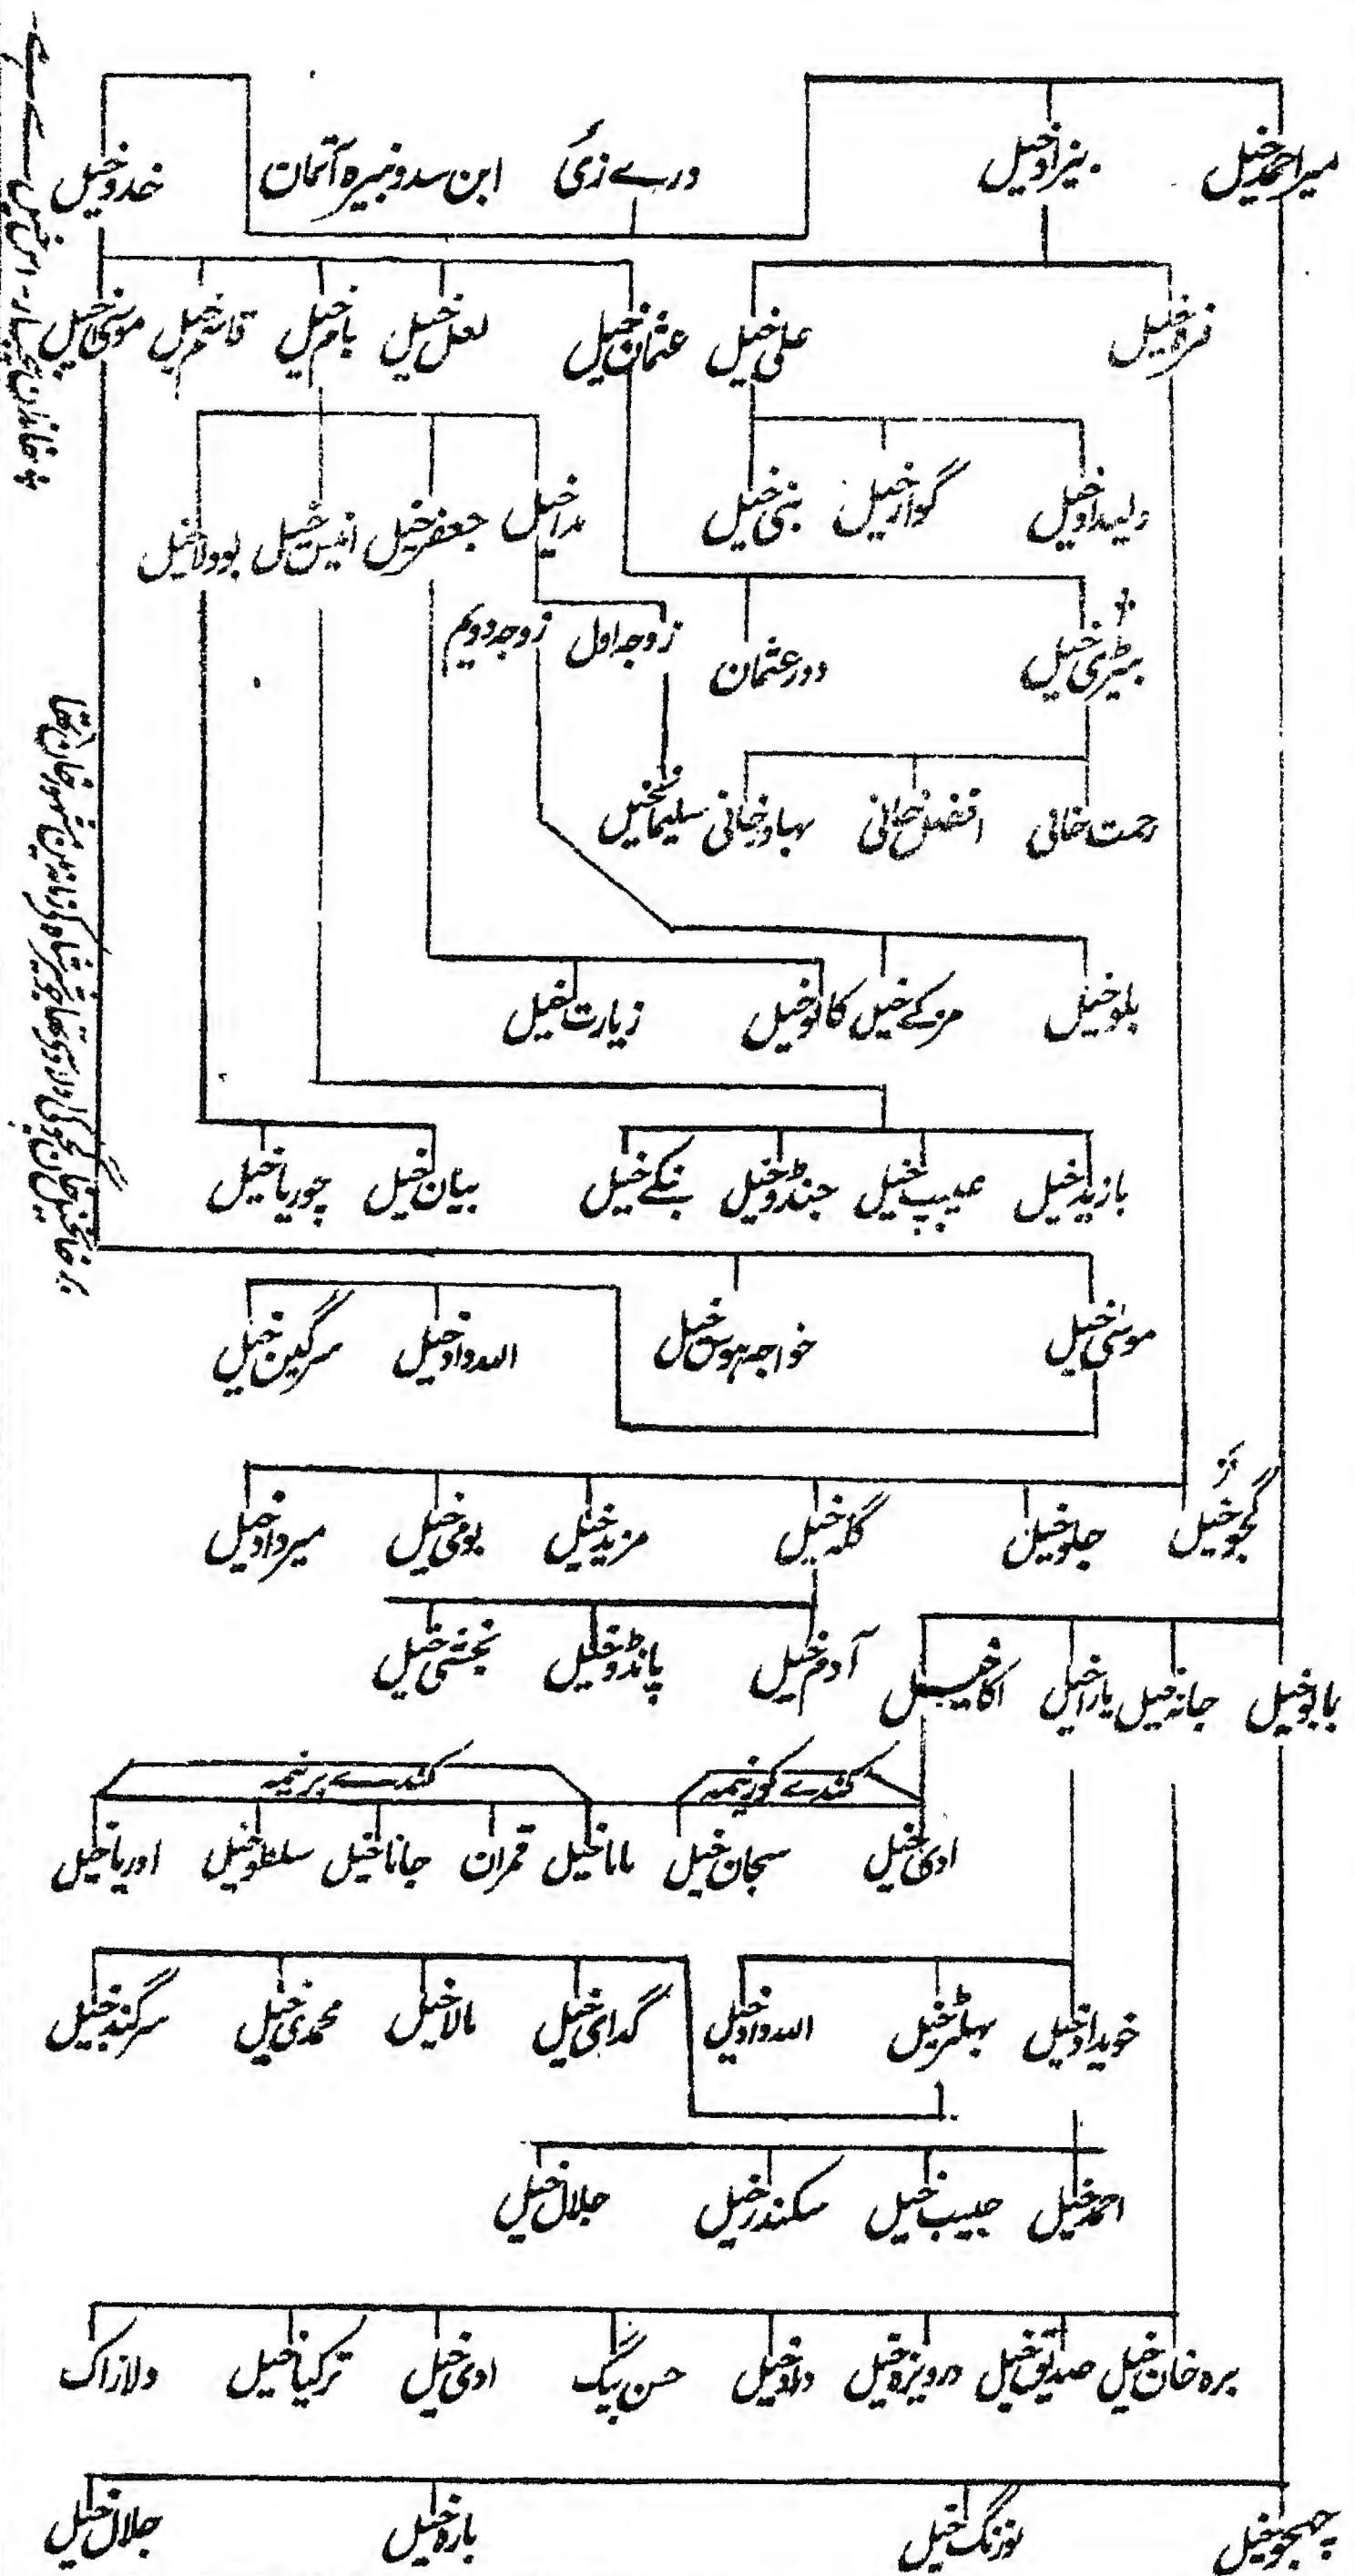 میراحمدخیل بہزادخیل درے زئی ابن سدو نبیرہ آتمان خدوخیل
علی خیل عثمان خیل لعل خیل بام خیل قاسم خیل موسیٰ خیل
گوارخیل بنی خیل مداخیل جعفرخیل انیس خیل بوولاخیل
بٹیری خیل دور عثمان زوجہ اول زوجہ دویم
رحمت خانی افضل خانی بہادرخانی سلیماخیل
بلوخیل مزکے خیل کالوخیل زیارت خیل
بازیدخیل عیب خیل جنڈوخیل بنکے خیل بیان خیل چوریاخیل
موسیٰ خیل خواجہ ہوس خیل اللہ دادخیل سرگین خیل
گجوخیل جلوخیل گلہ خیل مزیدخیل بومی خیل میردادخیل
آدم خیل پانڈوخیل بخشی خیل
بابوخیل جانہ خیل یاراخیل اکاخیل
کندے کوزنیمہ کندے برنیمہ
ادی خیل سبحان خیل ماناخیل قمران جاناخیل سلطوخیل اوریاخیل
خویدادخیل بہلٹرخیل اللہ دادخیل گدای خیل مالاخیل محمدی خیل سرکندخیل
احمدخیل حبیب خیل سکندرخیل جلال خیل
برہ خان خیل صدیق خیل درویزہ خیل دادوخیل حسن بیگ ادی خیل ترکیاخیل دلازاک
چھجوخیل نورنگ خیل بارہ خیل جلال خیل